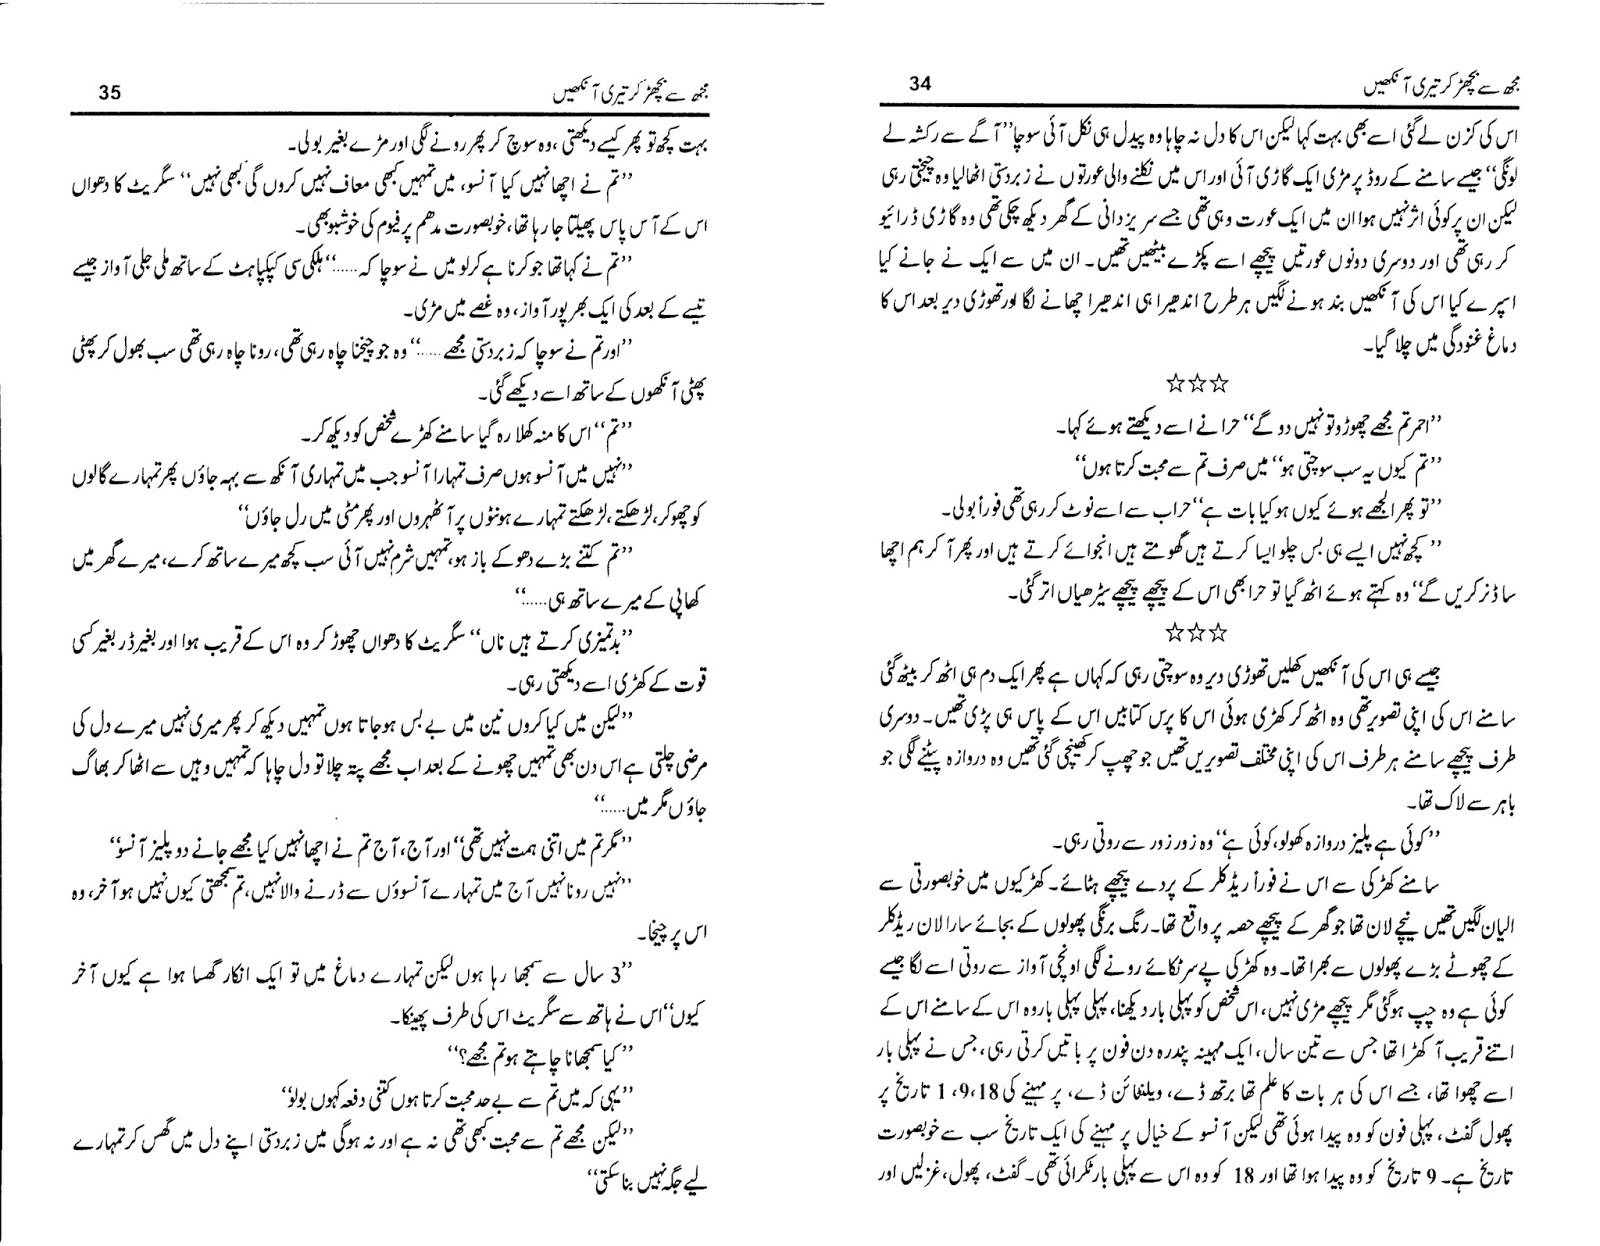 مجھ سے بچھڑ کر تیری آنکھیں 34
اس کی کزن لے گئی اسے بھی بہت کہا لیکن اس کا دل نہ چاہا وہ پیدل ہی نکل آئی سوچا ’’آگے سے رکشہ لے
لونگی‘‘ جیسے سامنے کے روڈ پر مڑی ایک گاڑی آئی اور اس میں نکلنے والی عورتوں نے زبردستی اٹھا لیا وہ چیختی رہی
لیکن ان پر کوئی اثر نہیں ہوا ان میں ایک عورت وہی تھی جسے سر یزدانی کے گھر دیکھ چکی تھی وہ گاڑی ڈرائیو
کر رہی تھی اور دوسری دونوں عورتیں پیچھے اسے پکڑے بیٹھیں تھیں۔ ان میں سے ایک نے جانے کیا
اسپرے کیا اس کی آنکھیں بند ہونے لگیں ہر طرح اندھیرا ہی اندھیرا چھانے لگا اور تھوڑی دیر بعد اس کا
دماغ غنودگی میں چلا گیا۔
☆☆☆
’’احمر تم مجھے چھوڑ تو نہیں دو گے‘‘ حرا نے اسے دیکھتے ہوئے کہا۔
’’تم کیوں یہ سب سوچتی ہو‘‘ میں صرف تم سے محبت کرتا ہوں‘‘
’’تو پھر الجھے ہوئے کیوں ہو کیا بات ہے‘‘ حرا اب سے اسے نوٹ کر رہی تھی فوراً بولی۔
’’کچھ نہیں ایسے ہی بس چلو ایسا کرتے ہیں گھومتے ہیں انجوائے کرتے ہیں اور پھر آ کر ہم اچھا
سا ڈنر کریں گے‘‘ وہ کہتے ہوئے اٹھ گیا تو حرا بھی اس کے پیچھے پیچھے سیڑھیاں اتر گئی۔
☆☆☆
جیسے ہی اس کی آنکھیں کھلیں تھوڑی دیر وہ سوچتی رہی کہ کہاں ہے پھر ایک دم ہی اٹھ کر بیٹھ گئی
سامنے اس کی اپنی تصویر تھی وہ اٹھ کر کھڑی ہوئی اس کا پرس کتابیں اس کے پاس ہی پڑی تھیں۔ دوسری
طرف پیچھے سامنے ہر طرف اس کی اپنی مختلف تصویریں تھیں جو چھپ کر کھینچی گئی تھیں وہ دروازہ پیٹنے لگی جو
باہر سے لاک تھا۔
’’کوئی ہے پلیز دروازہ کھولو، کوئی ہے‘‘ وہ زور زور سے روتی رہی۔
سامنے کھڑکی سے اس نے فوراً ریڈ کلر کے پردے پیچھے ہٹائے۔ کھڑکیوں میں خوبصورتی سے
الیان لگیں تھیں نیچے لان تھا جو گھر کے پیچھے حصہ پر واقع تھا۔ رنگ برنگی پھولوں کے بجائے سارا لان ریڈ کلر
کے چھوٹے بڑے پھولوں سے بھرا تھا۔ وہ کھڑکی پے سر ٹکائے رونے لگی اونچی آواز سے روتی اسے لگا جیسے
کوئی ہے وہ چپ ہو گئی مگر پیچھے مڑی نہیں، اس شخص کو پہلی بار دیکھنا، پہلی پہلی بار وہ اس کے سامنے اس کے
اتنے قریب آ کھڑا تھا جس سے تین سال، ایک مہینہ پندرہ دن فون پر باتیں کرتی رہی، جس نے پہلی بار
اسے چھوا تھا، جسے اس کی ہر بات کا علم تھا برتھ ڈے، ویلنٹائن ڈے، ہر مہینے کی 1،9،18 تاریخ پر
پھول گفٹ، پہلی فون کو وہ پیدا ہوئی تھی لیکن آنسو کے خیال پر مہینے کی ایک تاریخ سب سے خوبصورت
تاریخ ہے۔ 9 تاریخ کو وہ پیدا ہوا تھا اور 18 کو وہ اس سے پہلی بار ٹکرائی تھی۔ گفٹ، پھول، غزلیں اور
مجھ سے بچھڑ کر تیری آنکھیں 35
بہت کچھ تو پھر کیسے دیکھتی، وہ سوچ کر پھر رونے لگی اور مڑے بغیر بولی۔
’’تم نے اچھا نہیں کیا آنسو، میں تمہیں کبھی معاف نہیں کروں گی کبھی نہیں‘‘ سگریٹ کا دھواں
اس کے آس پاس پھیلتا جا رہا تھا، خوبصورت مدھم پرفیوم کی خوشبو بھی۔
’’تم نے کہا تھا جو کرنا ہے کر لو میں نے سوچا کہ.....‘‘ ہلکی سی کپکپاہٹ کے ساتھ ملی جلی آواز جیسے
تیسے کے بعد کی ایک بھرپور آواز، وہ غصے میں مڑی۔
’’اور تم نے سوچا کہ زبردستی مجھے.....‘‘ وہ جو چیخنا چاہ رہی تھی، رونا چاہ رہی تھی سب بھول کر پھٹی
پھٹی آنکھوں کے ساتھ اسے دیکھے گئی۔
’’تم‘‘ اس کا منہ کھلا رہ گیا سامنے کھڑے شخص کو دیکھ کر۔
’’نہیں میں آنسو ہوں صرف تمہارا آنسو جب میں تمہاری آنکھ سے بہہ جاؤں پھر تمہارے گالوں
کو چھو کر، لڑھکتے، لڑھکتے تمہارے ہونٹوں پر آ ٹھہروں اور پھر مٹی میں رل جاؤں‘‘
’’تم کتنے بڑے دھوکے باز ہو، تمہیں شرم نہیں آئی سب کچھ میرے ساتھ کرے، میرے گھر میں
کھا پی کے میرے ساتھ ہی.....‘‘
’’بدتمیزی کرتے ہیں ناں‘‘ سگریٹ کا دھواں چھوڑ کر وہ اس کے قریب ہوا اور بغیر ڈر بغیر کسی
قوت کے کھڑی اسے دیکھتی رہی۔
’’لیکن میں کیا کروں نین میں بے بس ہو جاتا ہوں تمہیں دیکھ کر پھر میری نہیں میرے دل کی
مرضی چلتی ہے اس دن بھی تمہیں چھونے کے بعد اب مجھے پتہ چلا تو دل چاہا کہ تمہیں وہیں سے اٹھا کر بھاگ
جاؤں مگر میں.....‘‘
’’مگر تم میں اتنی ہمت نہیں تھی‘‘ اور آج، آج تم نے اچھا نہیں کیا مجھے جانے دو پلیز آنسو‘‘
’’نہیں رونا نہیں آج میں تمہارے آنسوؤں سے ڈرنے والا نہیں، تم سمجھتی کیوں نہیں ہو آخر، وہ
اس پر چیخا۔
’’3 سال سے سمجھا رہا ہوں لیکن تمہارے دماغ میں تو ایک انکار گھسا ہوا ہے کیوں آخر
کیوں‘‘ اس نے ہاتھ سے سگریٹ اس کی طرف پھینکا۔
’’کیا سمجھانا چاہتے ہو تم مجھے؟‘‘
’’یہی کہ میں تم سے بے حد محبت کرتا ہوں کتنی دفعہ کہوں بولو‘‘
’’لیکن مجھے تم سے محبت کبھی تھی نہ ہے اور نہ ہوگی میں زبردستی اپنے دل میں گھس کر تمہارے
لیے جگہ نہیں بنا سکتی‘‘